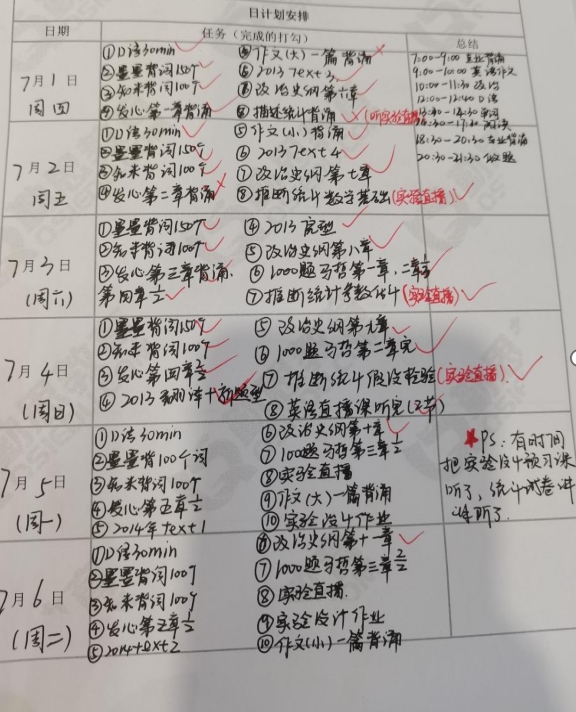 日计划安排
日期
任务（完成的打勾）
总结
7月1日
周四
①D话30min
②墨墨背词150个
③知米背词100个
④发心第一章背诵
⑤作文(大)一篇背诵
⑤2013 Text 3
⑥政治史纲第六章
⑧描述统计背诵
(听实验直播)
7:00-9:00 专业背诵
9:00-10:00 英语作文
10:00-11:30 政治
12:00-12:40 D话
13:30-14:30 单词
18:30-20:30 专业背诵
20:30-21:30 做题
7月2日
周五
①D话30min
②墨墨背词150个
③知米背词100个
④发心第二章背诵
⑤作文(小)背诵
⑥2013 Text 4
⑦政治史纲第七章
⑧推断统计数学基础(实验直播)
7月3日
(周六)
①墨墨背词150个
②知米背词100个
③发心第三章背诵.
第四章½
④2013完型
⑤政治史纲第八章
⑥1000题马哲第一章,二章½
⑦推断统计参数估计(实验直播)
7月4日
(周日)
①墨墨背词150个
②知米背词100个
③发心第四章½
④2013翻译+新题型
⑤政治史纲第九章
⑥1000题马哲第二章完
⑦推断统计假设检验(实验直播).
⑧英语直播课听完(2节)
7月5日
(周一)
①D话30min
②墨墨背100个词
③知米背词100个
④发心第五章½
⑤2014年text1
⑥政治史纲第十章
⑦1000题马哲第三章½
⑧实验直播
⑨作文(大)一篇背诵
⑩实验设计作业
PS:有时间
把实验设计预习课
听了,统计试卷讲
解听了.
7月6日
(周二)
①D话30min
②墨墨背词100个
③知米背词100个
④发心第五章½
⑤2014text2
⑥政治史纲第十一章
⑦1000题马哲第三章2/2
⑧实验直播.
⑨实验设计作业
⑩作文(小)一篇背诵